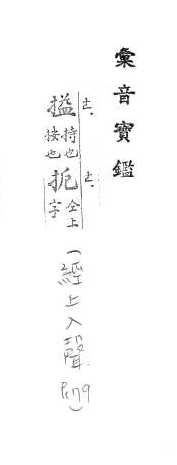 彙音寶鑑
搤 持也
按也
扼 仝上
字
(經上入聲 P.179)